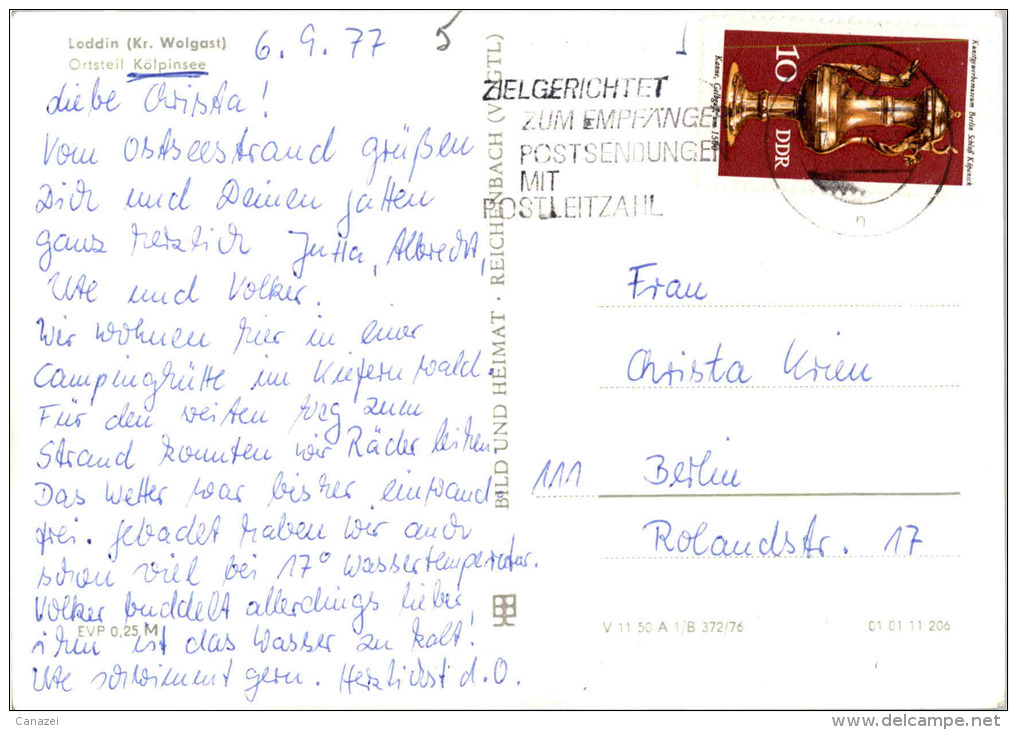 Loddin (Kr. Wolgast)
Ortsteil Kölpinsee
6. 9. 77
5
Liebe Christa!
Vom Ostseestrand grüßen
Dich und Deinen Gatten
ganz herzlich Jutta, Albrecht,
Ute und Volker.
Wir wohnen hier in einer
Campinghütte im Kiefernwald.
Für den weiten Weg zum
Strand konnten wir Räder leihen.
Das Wetter war bisher einwand-
frei. Gebadet haben wir auch
schon viel bei 17° Wassertemperatur.
Volker buddelt allerdings lieber,
ihm ist das Wasser zu kalt!
Ute schwimmt gern. Herzlichst d. O.
EVP 0,25 M
BILD UND HEIMAT · REICHENBACH (VOGTL)
ZIELGERICHTET
ZUM EMPFÄNGER
POSTSENDUNGEN
MIT
POSTLEITZAHL
10
DDR
Kunstgewerbemuseum Berlin Schloß Köpenick
Frau
Christa Krien
111 Berlin
Rolandstr. 17
V 11 50 A 1/B 372/76
01 01 11 206
Canazei
www.delcampe.net